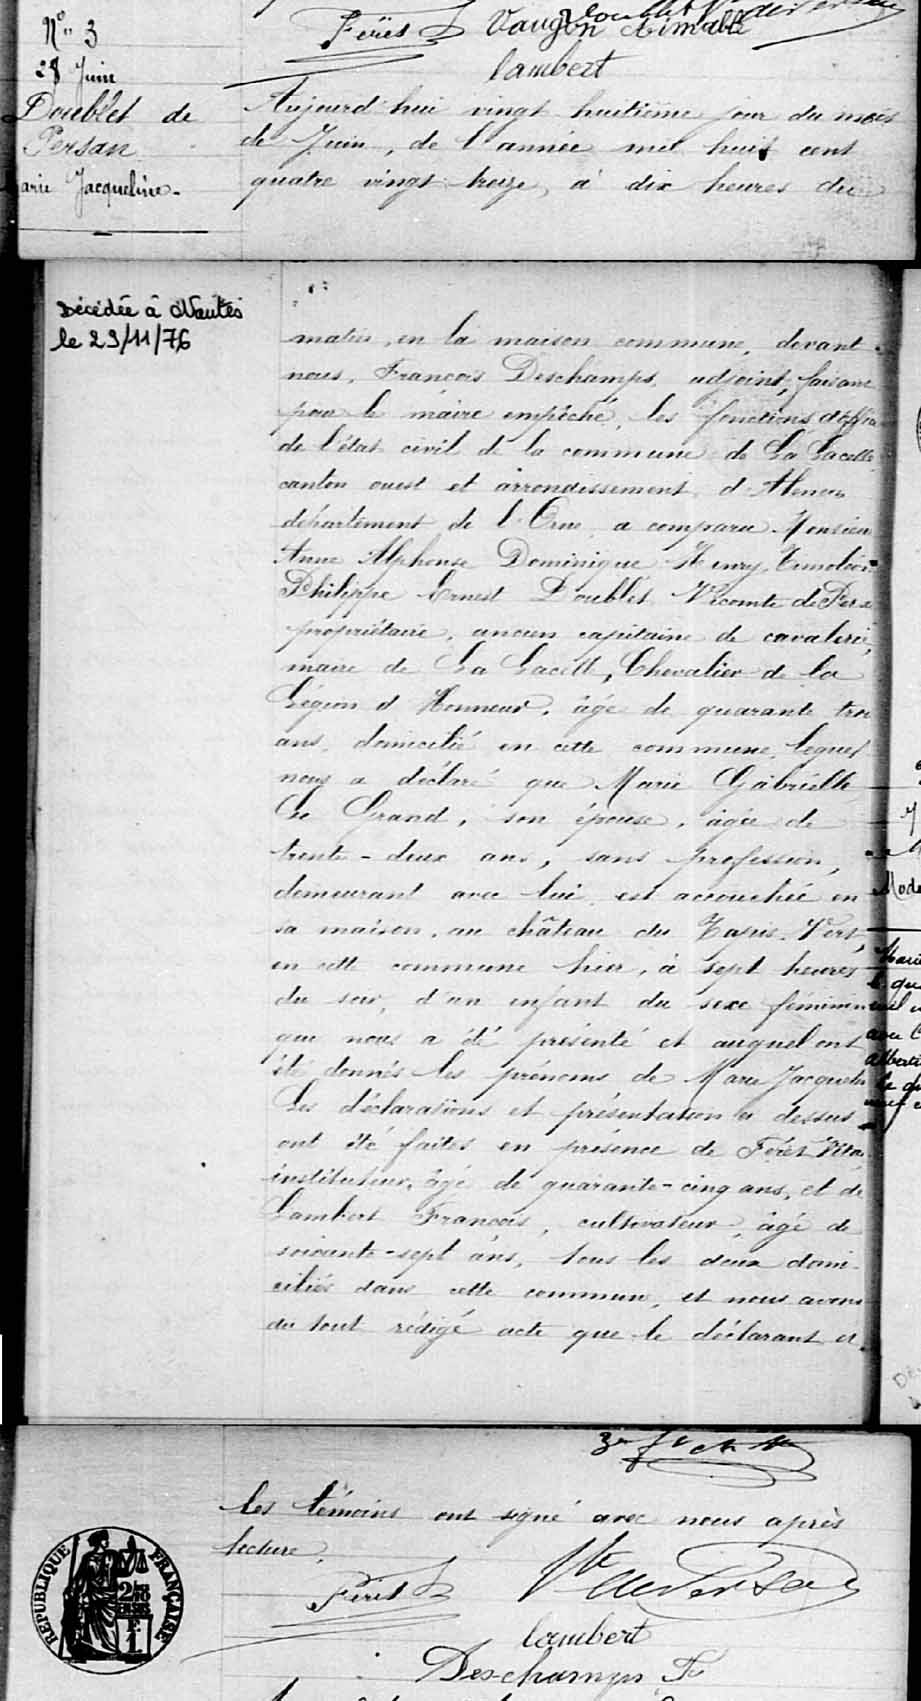 Vaugon Aimable
Férès
lambert
N° 3
28 Juin
Doublet de
Persan
arie Jacqueline.
Aujourd'hui vingt huitième jour du mois
de Juin, de l'année mil huit cent
quatre vingt treize, à dix heures du
Décédée à Nantes
le 29/11/76
matin, en la maison commune, devant
nous, François Deschamps, adjoint, faisant
pour le maire empêché, les fonctions d'offi
de l'état civil de la commune de La Lacelle
canton ouest et arrondissement d'Alençon
département de l'Orne, a comparu Monsieur
Anne Alphonse Dominique Henry Timoléon
Philippe Ernest Doublet Vicomte de Pers
propriétaire, ancien capitaine de cavalerie,
maire de La Lacelle, Chevalier de la
Légion d'Honneur, âgé de quarante trois
ans, domicilié en cette commune, lequel
nous a déclaré que Marie Gabrielle
Le Grand, son épouse, âgée de
trente-deux ans, sans profession,
demeurant avec lui, est accouchée en
sa maison, au château du Tapis-Vert,
en cette commune hier, à sept heures
du soir, d'un enfant du sexe féminin
que nous a été présenté et auquel ont
été donnés les prénoms de Marie Jacqueli
Les déclarations et présentation ci dessus
ont été faites en présence de Férès
instituteur, âgé de quarante-cinq ans, et de
Lambert François, cultivateur, âgé de
soixante-sept ans, tous les deux domi
ciliés dans cette commune, et nous avons
du tout rédigé acte que le déclarant et
les témoins ont signé avec nous après
lecture.
RÉPUBLIQUE FRANÇAISE
Férès
Vte de Persan
lambert
Deschamps F